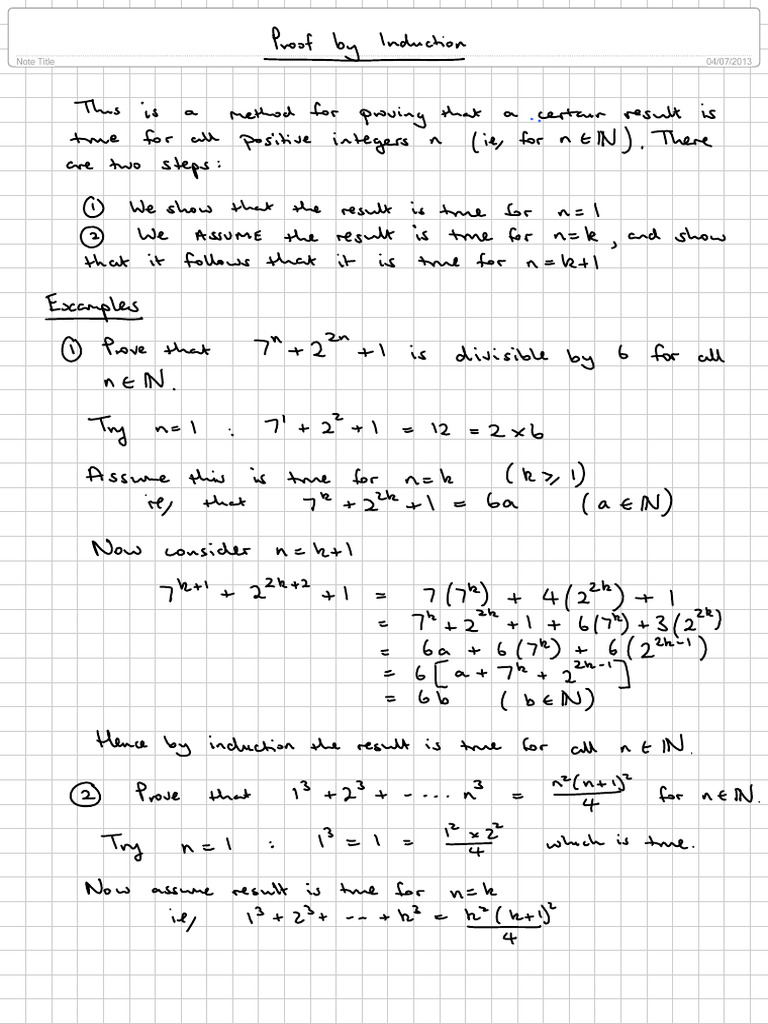 Proof by Induction
Note Title
04/07/2013
This is a method for proving that a certain result is
true for all positive integers n (ie, for n ∈ ℕ). There
are two steps:
① We show that the result is true for n = 1
② We ASSUME the result is true for n = k, and show
that it follows that it is true for n = k+1
Examples
① Prove that 7ⁿ + 2²ⁿ + 1 is divisible by 6 for all
n ∈ ℕ.
Try n = 1 : 7¹ + 2² + 1 = 12 = 2 × 6
Assume this is true for n = k (k ⩾ 1)
ie, that 7ᵏ + 2²ᵏ + 1 = 6a (a ∈ ℕ)
Now consider n = k+1
7ᵏ⁺¹ + 2²ᵏ⁺² + 1 = 7(7ᵏ) + 4(2²ᵏ) + 1
= 7ᵏ + 2²ᵏ + 1 + 6(7ᵏ) + 3(2²ᵏ)
= 6a + 6(7ᵏ) + 6(2²ᵏ⁻¹)
= 6[a + 7ᵏ + 2²ᵏ⁻¹]
= 6b (b ∈ ℕ)
Hence by induction the result is true for all n ∈ ℕ.
② Prove that 1³ + 2³ + ----- n³ = n²(n+1)²/4 for n ∈ ℕ.
Try n = 1 : 1³ = 1 = 1² × 2²/4 which is true.
Now assume result is true for n = k
ie, 1³ + 2³ + --- + k³ = k²(k+1)²/4